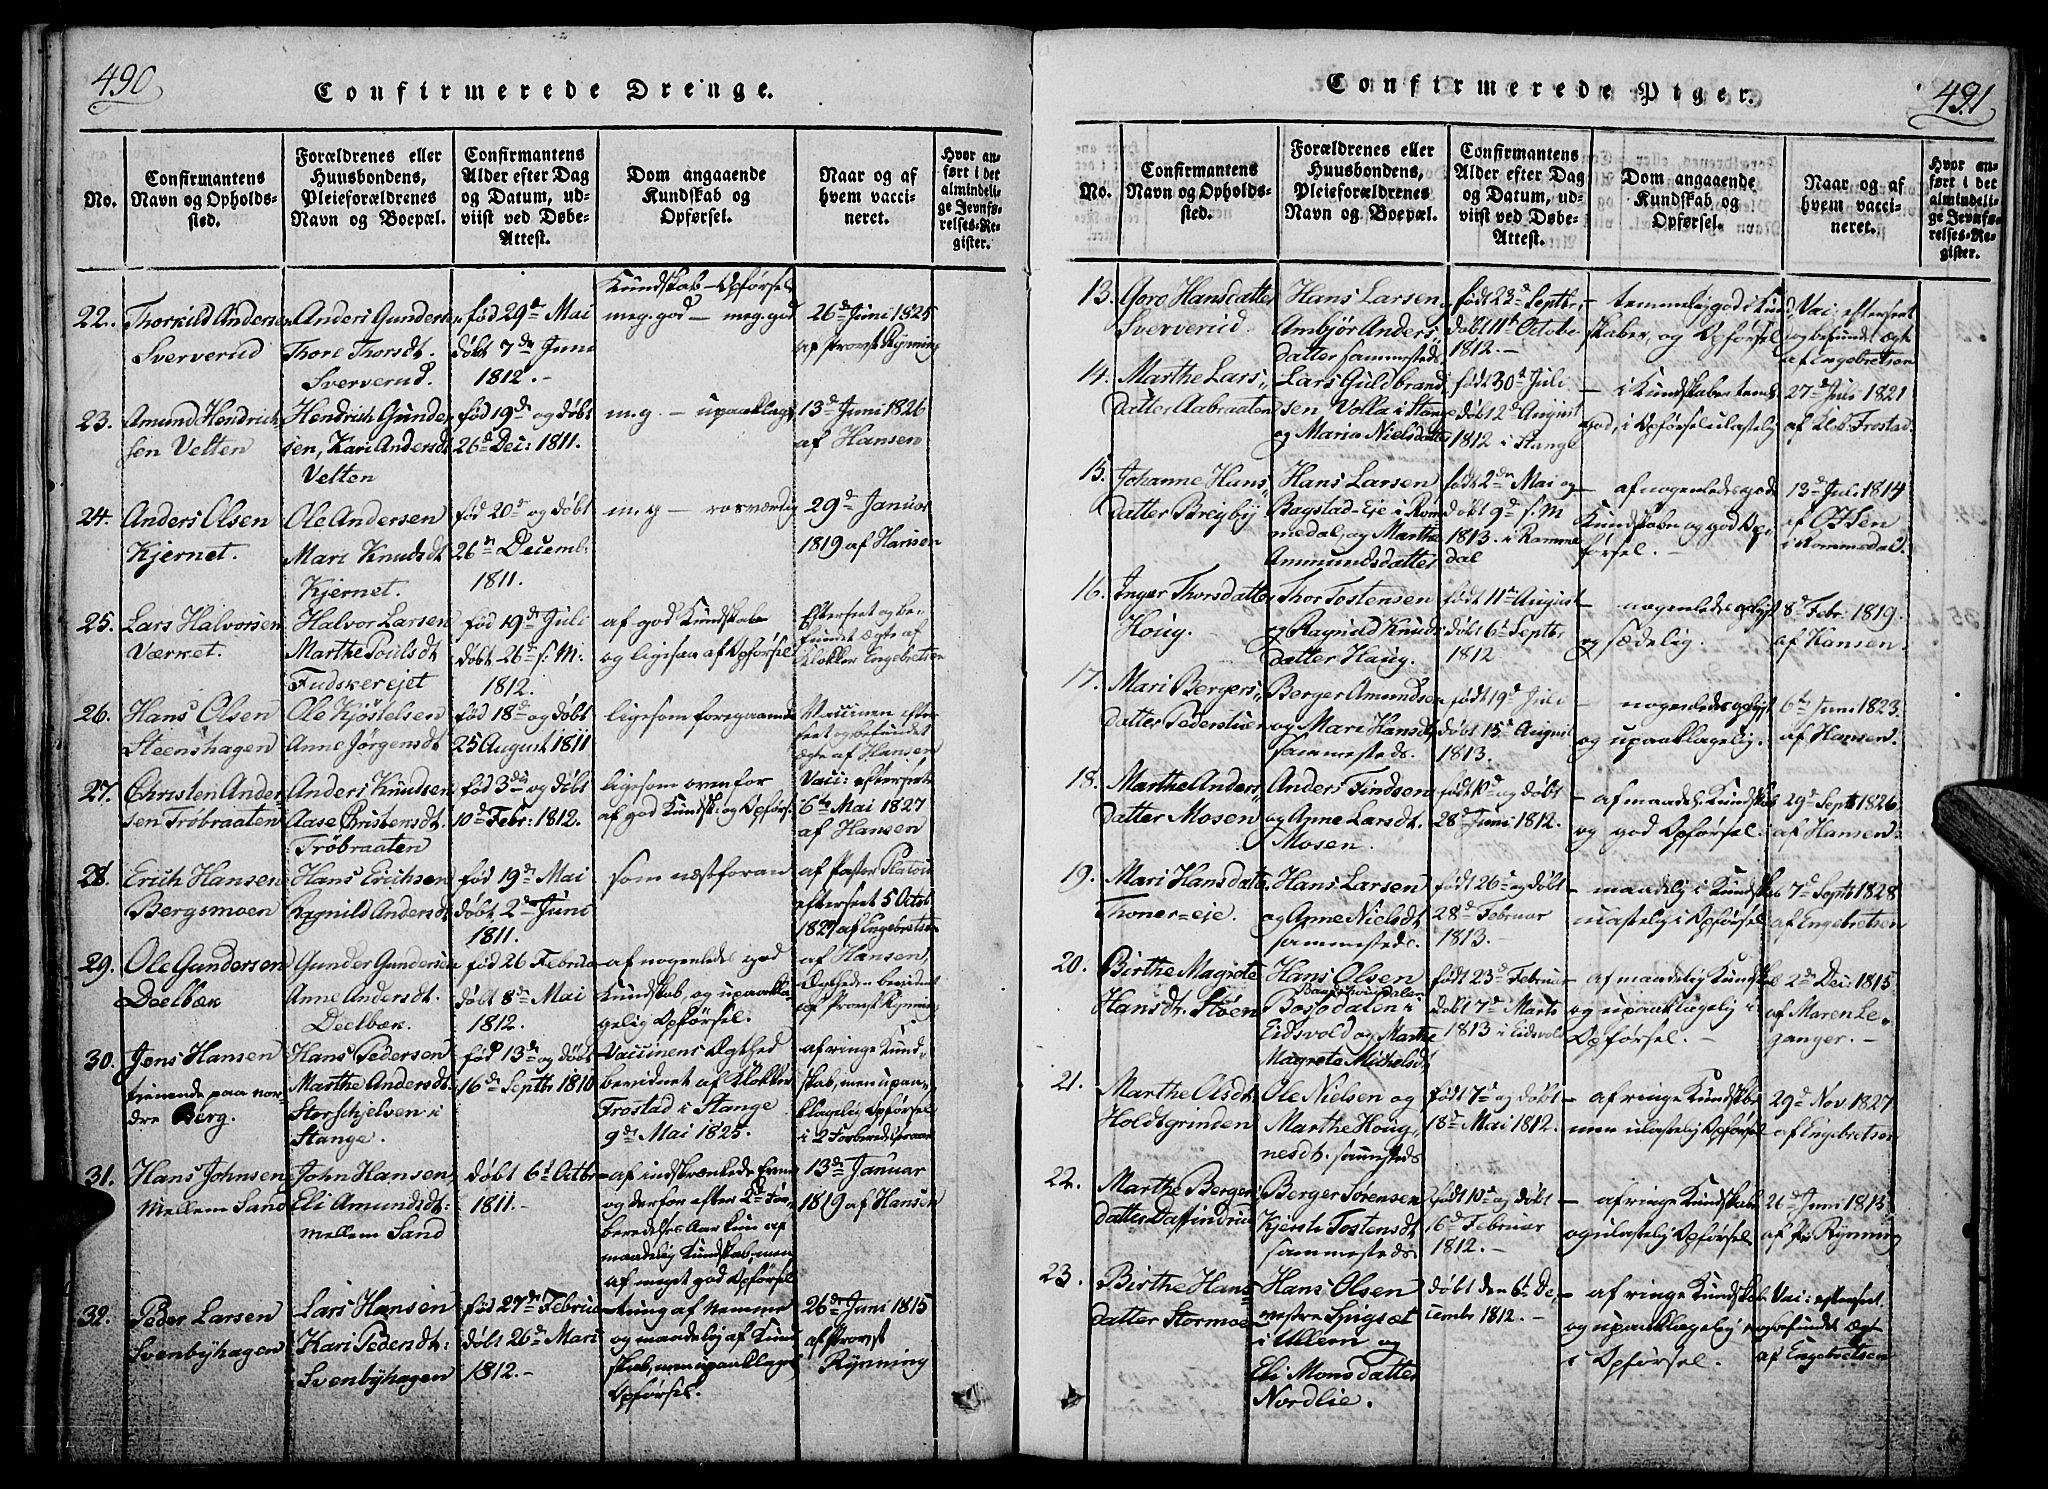 490
Confirmerede Drenge.
No.
Confirmantens
Navn og Opholds-
sted.
Forældrenes eller
Huusbondens,
Pleieforældrenes
Navn og Boepæl.
Confirmantens
Alder efter Dag
og Datum, ud-
viist ved Døbe-
Attest.
Dom angaaende
Kundskab og
Opførsel.
Naar og af
hvem vacci-
neret.
Hvor an-
ført i det
almindeli-
ge Jevnfø-
relses-Re-
gister.
Kundskab - Opførsel
22.
Thorkild Andersen
Sververud
Anders Gunders
Thore Thorsdt.
Sververud.
fød 29de Mai
døbt 7de Juni
1812.-
meg. god - meg. god
26de Juni 1825
af Provst Rynning
23.
Amund Hendrich
sen Velten
Hendrich Gunder
sen, Kari Andersdt
Velten
fød 19de og døbt
26de Dec: 1811.
m. g. - upaaklagl
13de Juni 1826
af Hansen
24.
Anders Olsen
Kjernet.
Ole Andersen
Mari Knudsdt
Kjernet.
fød 20de og døbt
26de Decemb.
1811.
m. g - rosværdig
29de Januar
1819 af Hansen
25.
Lars Halvorsen
Værket.
Halvor Larsen
Marthe Poulsdt
Fudskerejet
fød 19de Juli
døbt 26de s: M:
1812.
af god Kundskab
og ligesaa af Opførsel
Efterseet og be-
fundet ægte af
Klokker Engebretsen
26.
Hans Olsen
Steenshagen
Ole Kjøstelsen
Anne Jørgensdt
fød 18de og døbt
25 August 1811
ligesom foregaaende
Vaccinen efter
seet og befundet
ægte af Hansen
27.
Christen Ander-
sen Trøbraaten
Anders Knudsen
Aase Christensdt.
Trøbraaten
fød 3de og døbt
10de Febr: 1812.
ligesom ovenfor
af god Kundsk: og Opførs:
Vacc: efterseet
6te Mai 1827
af Hansen
28.
Erich Hansen
Bergsmoen
Hans Erichsen
Ragnild Andersdt
fød 19de Mai
døbt 2de Juni
1811.
som næstforan
af Pastor Platou
efterseet 5 Octob
1827 af Engebretsen
29.
Ole Gundersen
Deelbæk
Gunder Gundersen
Anne Andersdt.
Deelbæk.
fød 26 Februar
døbt 8de Mai
1812.
af nogenledes god
Kundskab, og upaakla-
gelig Opførsel.
af Hansen,
Ægtheden bevidnet
af Provst Rynning
30.
Jens Hansen
tienende paa nor-
dre Berg.
Hans Pedersen
Marthe Andersdt.
Storschjelven i
Stange.
fød 13de og døbt
16de Septbr 1810
Vaccinens Ægthed
bevidnet af Klokker
Frostad i Stange
9de Mai 1825.
af ringe Kund-
skab, men upaa-
klagelig Opførsel
i 2 Forbered. paar
31.
Hans Johnsen
Mellem Sand
John Hansen,
Eli Amundsdt:
mellem Sand
døbt 6te Octbr
1811.-
af indskrænkede Evner
og derfor efter 2de For-
beredelses Aar kun af
maadelig Kundskab, men
af meget god Opførsel
13de Januar
1819 af Hansen
32.
Peder Larsen
Svenbyhagen
Lars Hansen
Kari Pedersdt:
Svenbyhagen
fød 27de Februar
døbt 26de Mari
1812.-
tung af Nemme
og maadelig af Kund
skab, men upaaklagel
Opførsel.
26de Juni 1815
af Provst
Rynning
491
Confirmerede Piger.
No.
Confirmantens
Navn og Opholds-
sted.
Forældrenes eller
Huusbondens,
Pleieforældrenes
Navn og Boepæl.
Confirmantens
Alder efter Dag
og Datum, ud-
viist ved Døbe-
Attest.
Dom angaaende
Kundskab og
Opførsel.
Naar og af
hvem vacci-
neret.
Hvor an-
ført i det
almindeli-
ge Jevnfø-
relses-Re-
gister.
13.
Goro Hansdatter
Sververud.
Hans Larsen og
Ambjör Anders-
datter sammesteds
født 23de Septbr.
døbt 11te Octobe
1812.-
- temmelig god i Kund
skaber, og Opførsel
Vac: efterseet
og befundet ægte
af Engebretsen
14.
Marthe Lars-
datter Aabraaten
Lars Guldbrand
sen Volla i Stange
og Maria Nielsdatter
født 30te Juli
døbt 12te August
1812 i Stange
- i Kundskaber tem.
god, i Opførsel ulastelig
27de Juli 1821
af Klok: Frostad.
15.
Johanne Hans-
datter Breigby
Hans Larsen
Bagstad-Eje i Rom
medal, og Marthe
Ammundsdatter
født 2den Mai og
døbt 9de s: M
1813. i Romme
dal
- af nogenledes gode
Kundskaber og god Op-
førsel.-
13de Juli 1814
af Olsen
i Rommedal.
16.
Inger Thorsdatter
Houg.
Thor Tostensen
og Ragnild Knuds-
datter Haug.
født 11te August
døbt 6te Septbr
1812
- nogenledes oplyst
og sædelig.
8de Febr. 1819.
af Hansen.
17.
Mari Bergers-
datter Pederstuen
Berger Amundsen
og Mari Hansdt
sammesteds.
født 19de Juli
døbt 15de August
1813.
- nogenledes oplyst
og upaaklagelig.
6te Juni 1823.
af Hansen.
18.
Marthe Anders-
datter Mosen
Anders Findsen
og Anne Larsdt.
Mosen.
født 10de og døbt
28de Juni 1812.
- af maadel. Kundskab
og god Opførsel.
29de Septb 1826
af Hansen:
19.
Mari Hansdatter
Thoner-eje.
Hans Larsen
og Anne Nielsdt
sammesteds.
født 26de og døbt
28de Februar
1813.-
- maadelig i Kundskab
ulastelig i Opførsel
7de Septb 1828
af Engebretsen
20.
Birthe Magrete
Hansdt. Støen
Hans Olsen
Bosodalen i
Eidsvold og Marthe
Magrete Michelsdt
født 23de Februar
døbt 7de Marts
1813 i Eidsvol
- af maadelig Kundskab
og upaaklagelig i
Opførsel.
2de Dec: 1815
af Maren Le-
ganger.-
21.
Marthe Olsdt
Holdtgrinden
Ole Nielsen og
Marthe Houg-
nesdt. sammesteds
født 7de og døbt
18de Mai 1812.
- af ringe Kundskab
men ulastelig Opførsel
29de Nov. 1827
af Engebretsen
22.
Marthe Berger-
datter Daffindrud
Berger Sørensen
Kjersti Tostensdt
sammesteds
født 10de og døbt
16de Februar
1812.-
- af ringe Kundskab
og ulastelig Opførsel
26de Juni 1815
af Pr Rynning
23.
Birthe Hans-
datter Stormoen
Hans Olsen
i Ullern og
Eli Monsdatter
Nordlie.
døbt den 6te De-
cembr 1812.-
- af ringe Kundskab
og upaaklagelig
i Opførsel.
Vac: efterseet
og befundet ægt
af Engebretsen